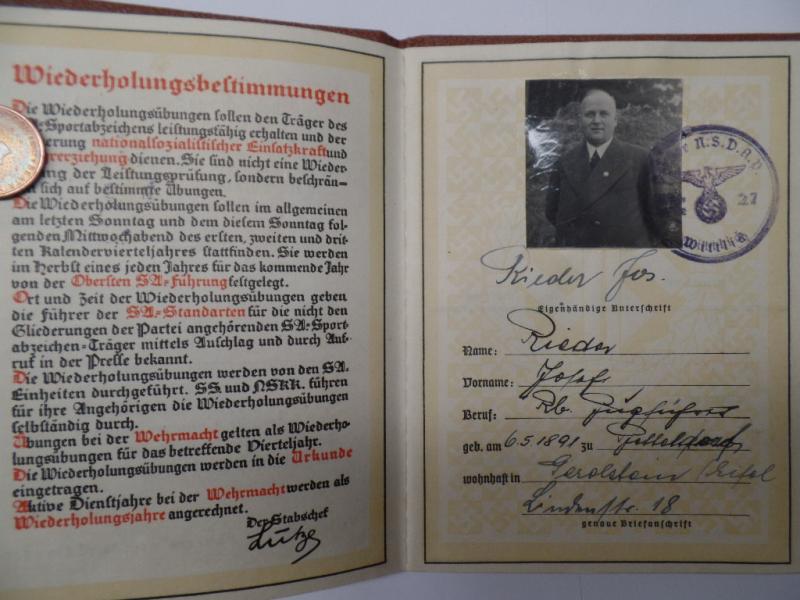 Wiederholungsbestimmungen
Die Wiederholungsübungen sollen den Träger des
Sportabzeichens leistungsfähig erhalten und der
nationalsozialistischer Einsatzkraft und
dienen. Sie sind nicht eine Wieder-
der Leistungsprüfung, sondern beschrän-
sich auf bestimmte Übungen.
Die Wiederholungsübungen sollen im allgemeinen
am letzten Sonntag und dem diesem Sonntag fol-
genden Mittwochabend des ersten, zweiten und drit-
ten Kalendervierteljahres stattfinden. Sie werden
im Herbst eines jeden Jahres für das kommende Jahr
von der Obersten SA.-Führung festgelegt.
Ort und Zeit der Wiederholungsübungen geben
die Führer der SA.-Standarten für die nicht den
Gliederungen der Partei angehörenden SA.-Sport-
abzeichen-Träger mittels Anschlag und durch Auf-
ruf in der Presse bekannt.
Die Wiederholungsübungen werden von den SA.
Einheiten durchgeführt. SS. und NSKK. führen
für ihre Angehörigen die Wiederholungsübungen
selbständig durch.
Übungen bei der Wehrmacht gelten als Wiederho-
lungsübungen für das betreffende Vierteljahr.
Die Wiederholungsübungen werden in die Urkunde
eingetragen.
Aktive Dienstjahre bei der Wehrmacht werden als
Wiederholungsjahre angerechnet.
Der Stabschef
Lutze
N.S.D.A.P.
27
Wittlich
Rieder Jos.
Eigenhändige Unterschrift
Name: Rieder
Vorname: Josef
Beruf: Rb. Zugführer
geb. am 6.5.1891 zu
wohnhaft in Gerolstein / Eifel
Lindenstr. 18
genaue Briefanschrift